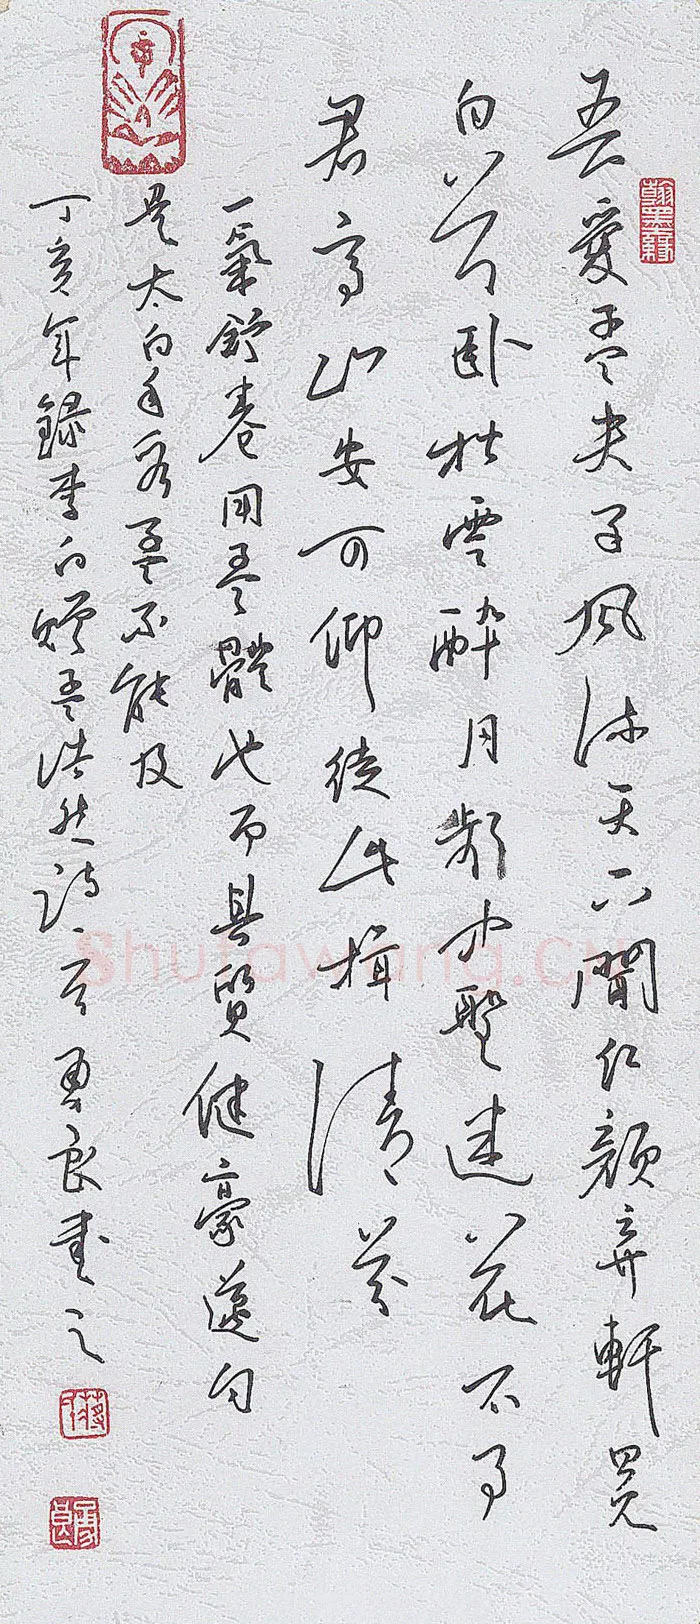 吾愛孟夫子風流天下聞紅顏棄軒冕
白首卧松雲醉月頻中聖迷花不事
君高山安可仰徒此揖清芬
一氣舒卷用孟體也而其質健豪邁自
是太白手段孟不能及
丁亥年錄李白贈孟浩然詩一首勇良書之
翰墨緣
勇良
Shufawang.cn